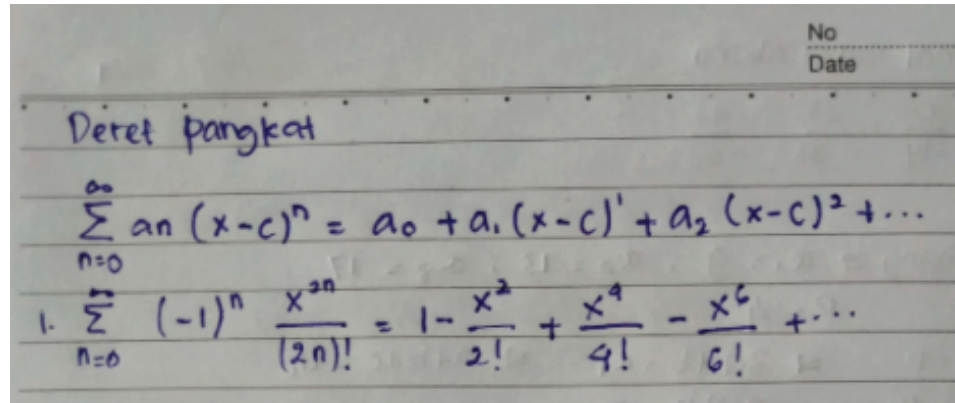 No
Date
Deret pangkat
∞
Σ an (x-c)ⁿ = a₀ + a₁ (x-c)¹ + a₂ (x-c)² + ...
n=0
∞
1. Σ (-1)ⁿ x²ⁿ/(2n)! = 1 - x²/2! + x⁴/4! - x⁶/6! + ...
n=0